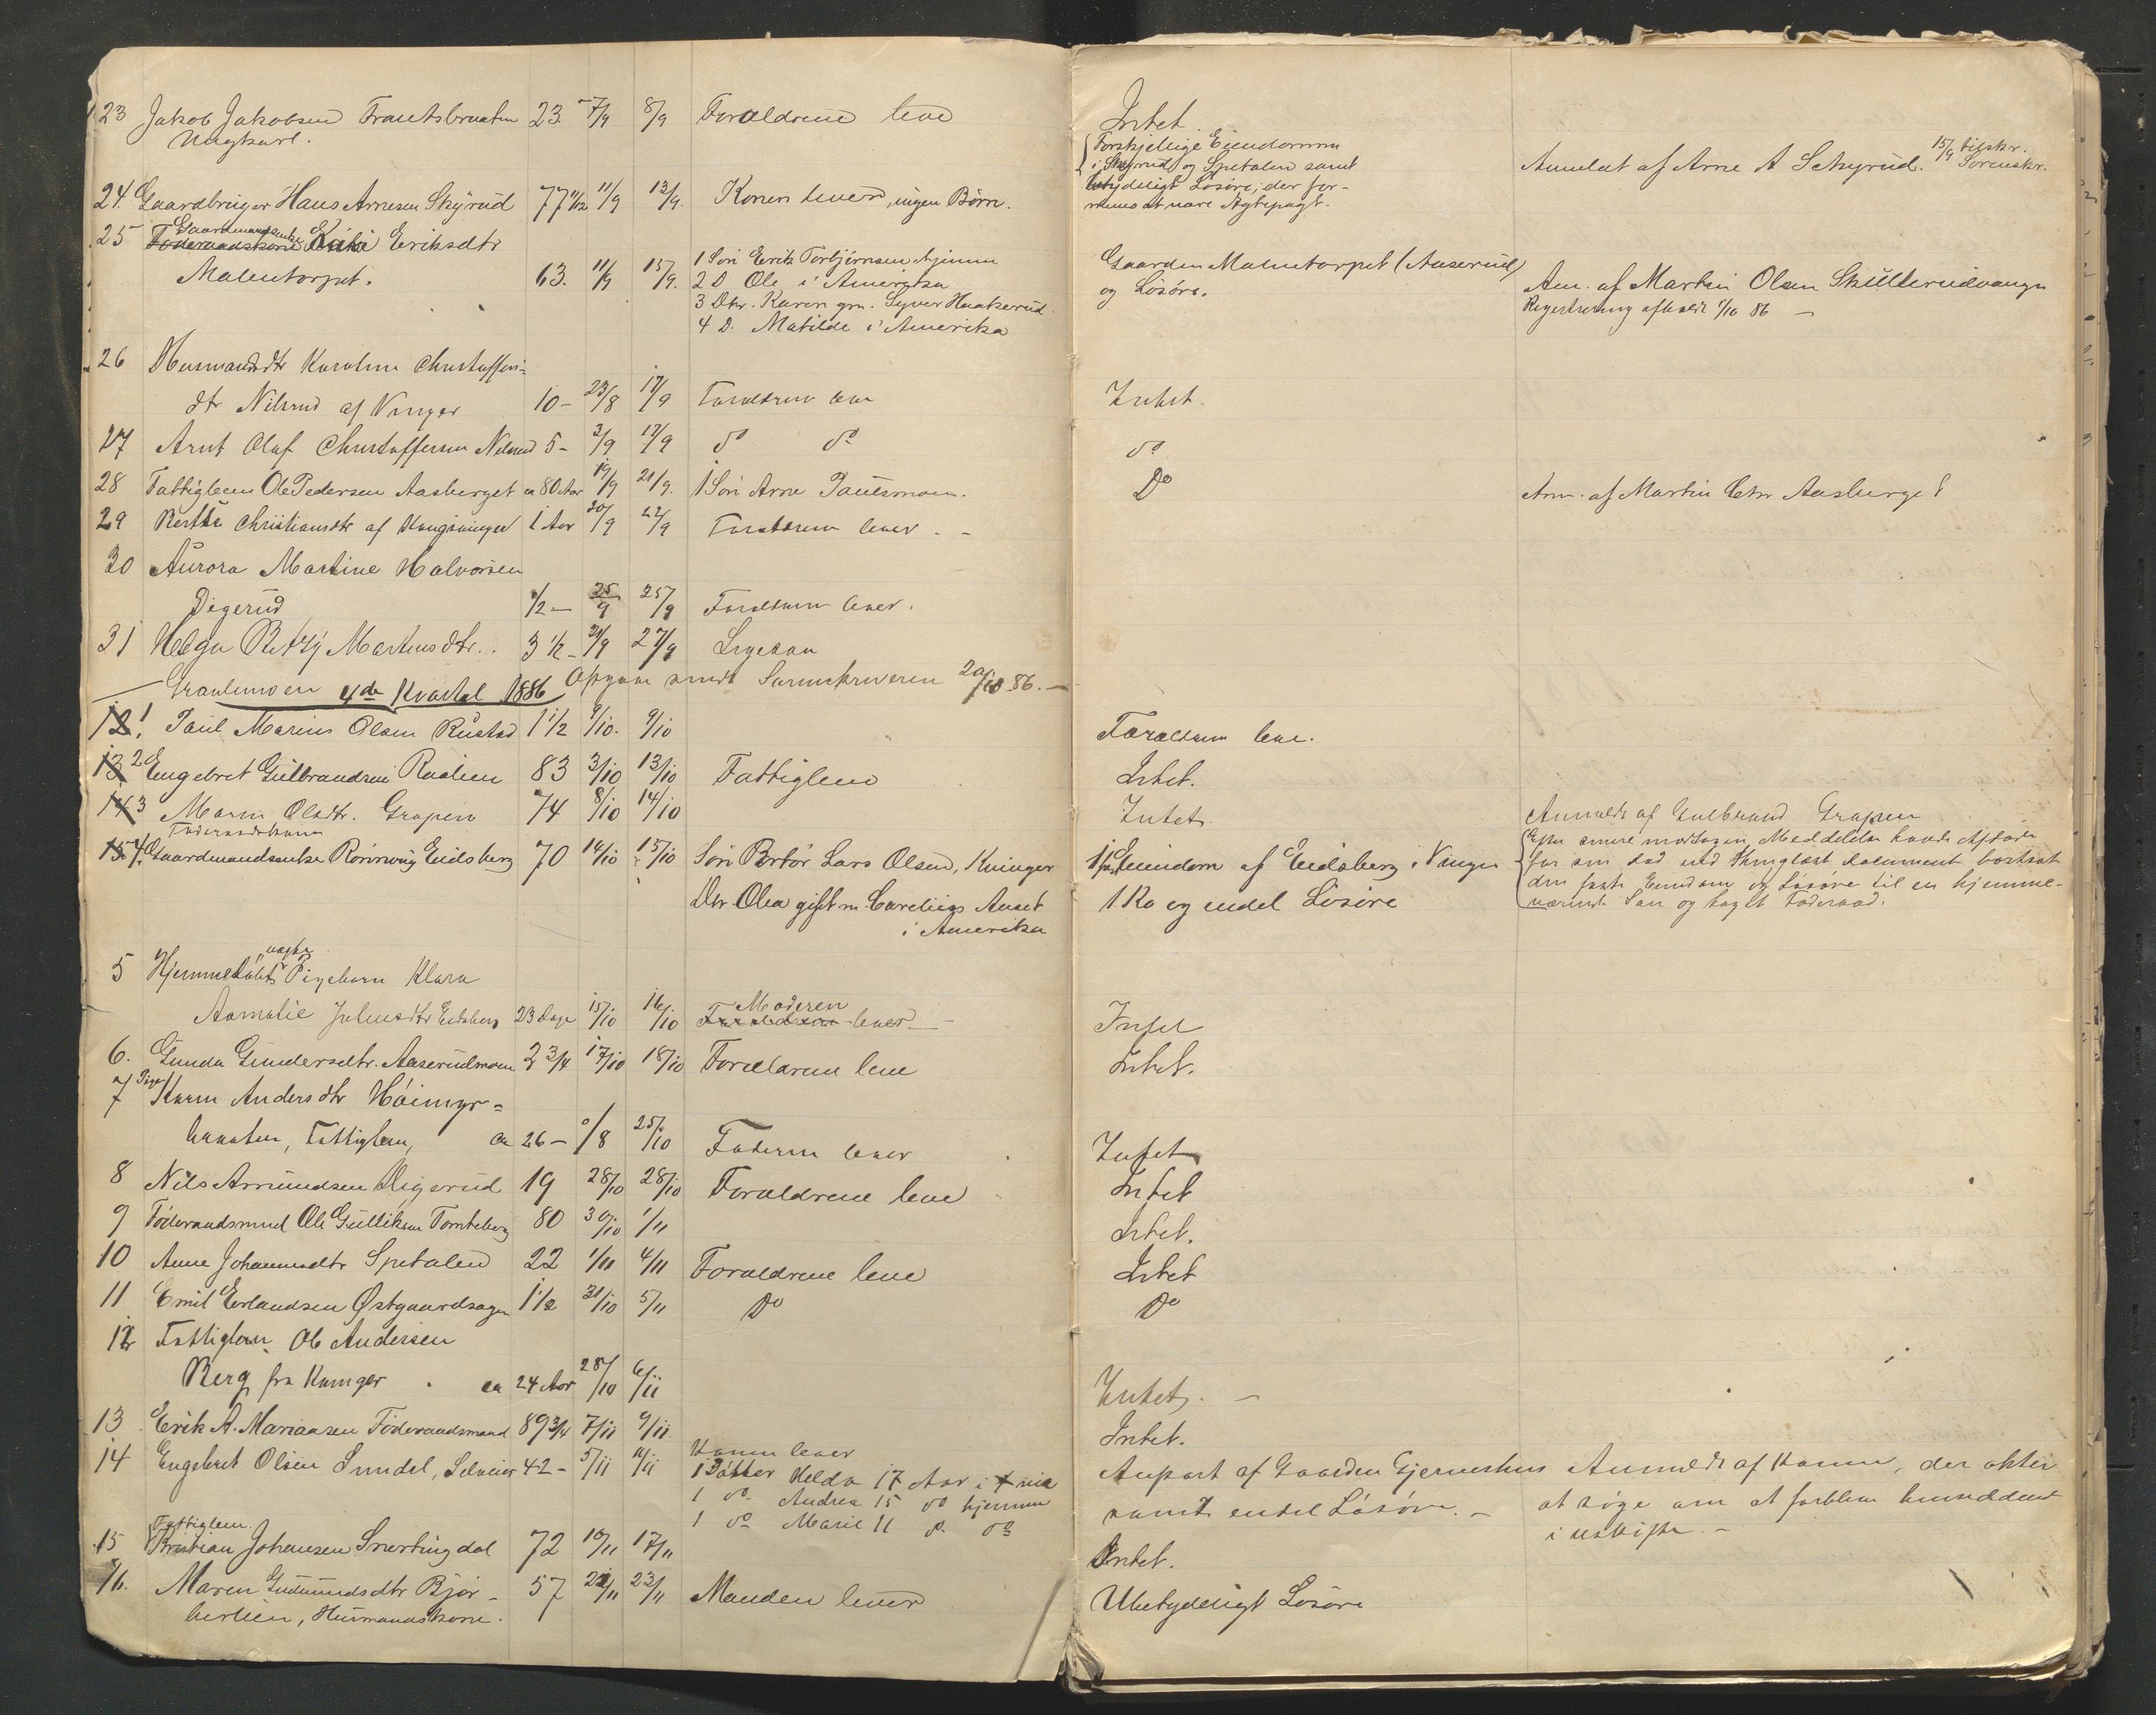 23 Jakob Jakobsen Frantsbraaten 23. 7/9 8/9 Forældrene leve Intet
Ungkarl.
24. Gaardbruger Hans Arnesen Skyrud 77 11/12 11/9 13/9. Konen lever, ingen Børn.
{Forskjellige Eiendomme
i Skyrud og Spetalen samt
ubetydeligt Løsøre, der for-
menes at være Ægtepagt.
Anmeldt af Arne A Schyrud. 15/9 tilskr. Sorenskr.
25 Gaardmandsenke Eriksdtr
Malentorpet. 63. 11/9 15/9.
1 Søn Erik Torbjørnsen hjemme
2 D Ole i Amerika
3 Dtr. Karen gm. Syver Haakerud
4 D. Matilde i Amerika
Gaarden Malentorpet (Aaserud)
og Løsøre.
Anm. af Martin Olsen Skulterudvangen
Registrering afholdt 1/10 86 —
26 Husmandsdtr Karoline Christoffers-
dtr Nilsrud af Vinger 10 – 23/8 17/9 Forældrene leve Intet.
27 Arnt Olaf Christoffersen Nilsrud 5 – 3/9 17/9 do do do
28 Fattiglem Ole Pedersen Aasberget ca 80 Aar 19/9 21/9. 1 Søn Arne Paulsmoen. Do Anm. af Martin Aasberget
29 Berthe Christiansdtr af Kongsvinger 1 Aar 20/9 22/9 Forældrene lever. –
30 Aurora Martine Halvorsen
Digerud 1/2 – 25/9 25/9 Forældrene lever.
31 Helga Betzy Martinsdtr. 3 1/2 – 21/9 27/9 Ligesaa
Granlimoen 4de Kvartal 1886 Opgave sendt Sorenskriveren 20/10 86. —
12 1 Paul Marius Olsen Rustad 1 1/2 9/10. 9/10 Forældrene leve.
13 2 Engebret Gulbrandsen Raalien 83 3/10 13/10 Fattiglem Intet.
14 3 Maren Olsdtr. Grapen 74 8/10 14/10 Intet. Anmeldt af Gulbrand Grapen
Føderaadskone
15. 4. Gaardmandsenke Rønnaug Eidsberg 70 14/10 15/10 Søn Portør Lars Olsen, Kvinger
Dtr. Olea gift m. Carelius Auset
i Amerika
1 Eiendom af Eidsberg i Vinger
1 Ko og endel Løsøre
{Efter senere modtagen Meddelelse havde Afdøde
før sin død ved thinglæst Document bortsat
den faste Eiendom og Løsøre til en hjemme-
værende Søn og taget Føderaad.
5 Hjemmedøbt uægte Pigebarn Klara
Aamalie Juliusdtr Eidsberg 23 Dage 15/10 16/10 Moderen Forældrene lever — Intet
6. Gunda Gundersdtr. Aaserudmoen 2 3/4 17/10 18/10 Forældrene leve Intet.
7 Pige Karen Andersdtr Høimyr-
braaten, Fattiglem, ca 26 – 0/8 25/10 Faderen lever Intet
8 Nils Amundsen Digerud 19 28/10 28/10 Forældrene leve Intet
9 Føderaadsmand Ole Gulliksen Tomteberg 80 30/10 1/11 Intet.
10 Anne Johannesdtr Spetalen 22 1/11 4/11 Forældrene leve Intet
11 Emil Erlandsen Østgaardsagen 1 1/2 31/10 5/11 Do Do
12 Fattiglem Ole Andersen
Berg fra Kvinger ca 24 Aar 28/10 6/11 Intet. —
13 Erik A. Mariaasen Føderaadsmand 89 3/4 7/11 9/11 Intet.
14 Engebret Olsen Sundet, Selveier 42 – 5/11 11/11
Konen lever
1 Datter Helda 17 Aar i
1 do Andrea 15 do hjemme
1 do Marie 11 do do
Anpart af Gaarden Gjerneshus
samt endel Løsøre. –
Anmeldt af Konen, der akter
at søge om at forblive hensiddende
i uskifte. –
15 Fattiglem Kristian Johansen Snertingdal 72 10/11 17/11 Intet.
16. Maren Gudmundsdtr Bjør-
berlien, Husmandskone. 57 22/11 23/11 Manden lever Ubetydeligt Løsøre